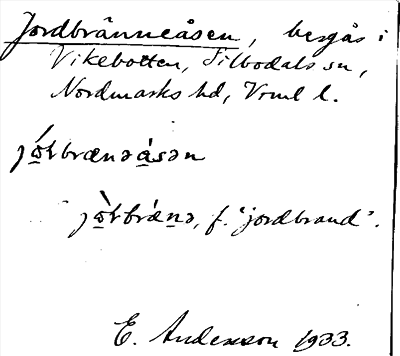 Jordbränneåsen, bergås i
Vikebotten, Tilbodals sn,
Nordmarks hd, Vrml l.
jo̱ʹɫbrænəa̱ʹsən
jo̱ˋɫbræ̱ʹnə, f. "jordbrand".
E. Andersson 1933.